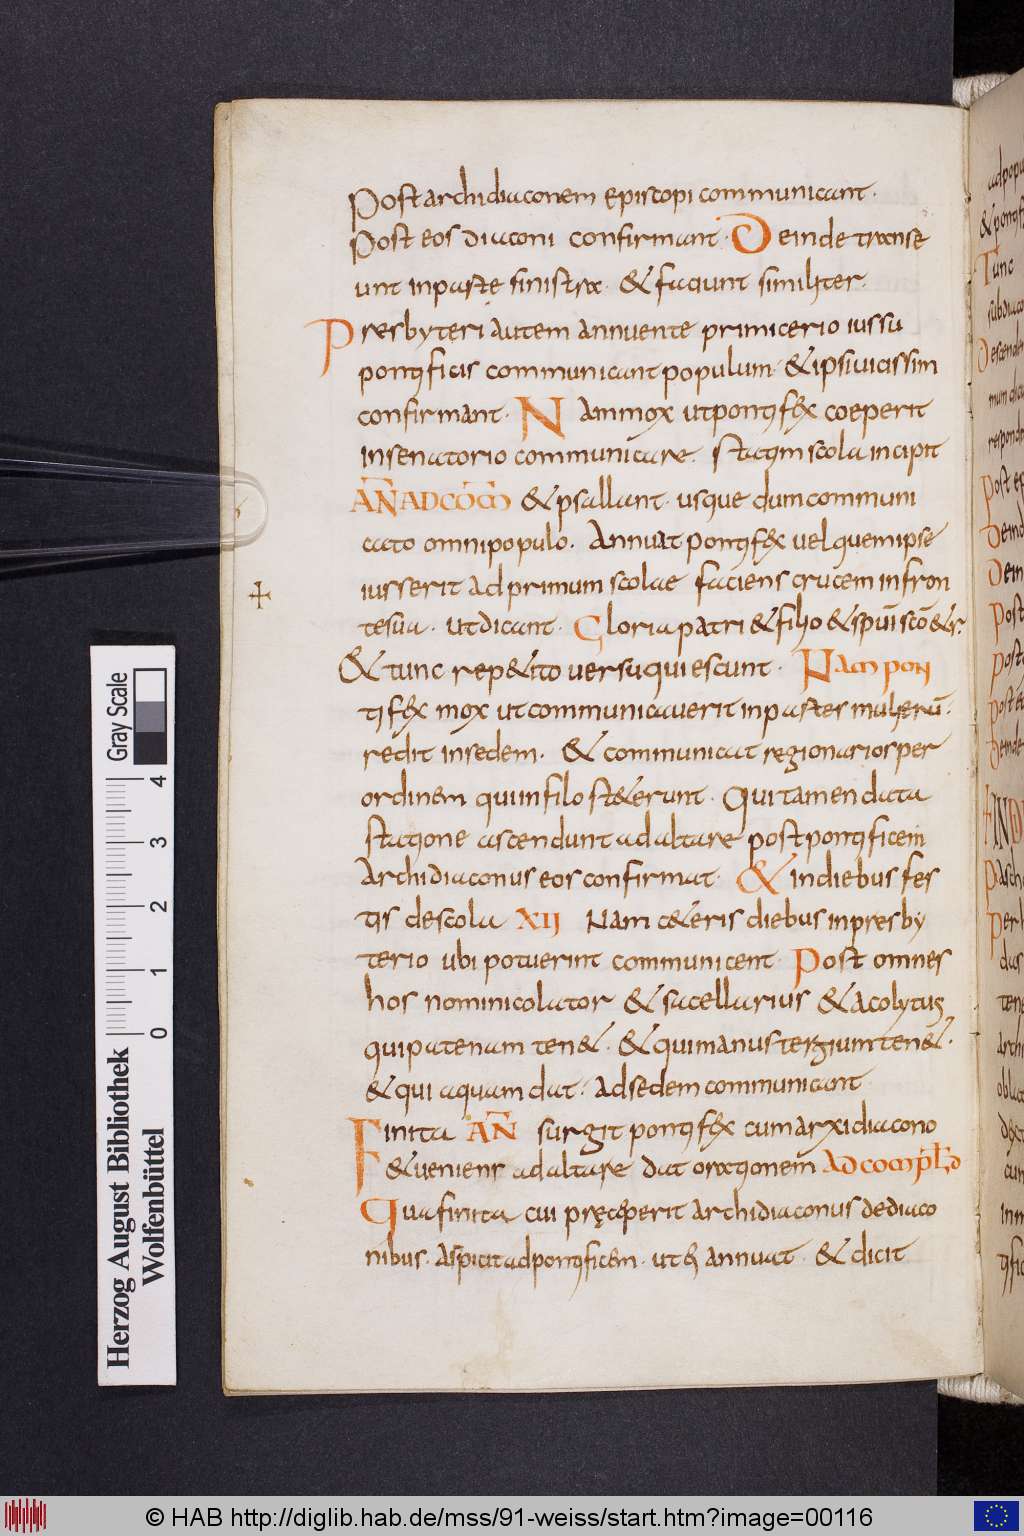 Post archidiaconem episcopi communicant.
Post eos diaconi confirmant. Deinde transe
unt in parte sinistra. & faciunt similiter.
Presbyteri autem annuente primicerio iussu
pontificis communicant populum. & ipsi uicissim
confirmant. Nam mox ut pontifex coeperit
in senatorio communicare. statim scola incipit
AÑ AD COM̄ & psallant. usque dum communi
cato omni populo. Annuat pontifex uel quem ipse
iusserit ad primum scolae faciens crucem in fron
te sua. ut dicant. Gloria patri & filio & spūi scō & r.
& tunc rep&ito uersu quiescunt. Nam pon
tifex mox ut communicauerit in partes mulierū.
redit in sedem. & communicat regionarios per
ordinem qui in filo st&erunt. Qui tamen data
statione ascendunt ad altare post pontificem
Archidiaconus eos confirmat. & in diebus fes
tis de scola XII Nam c&eris diebus in presby
terio ubi potuerint communicent. Post omnes
hos nominicolator & sacellarius & acolytus
qui patenam ten&. & qui manustergium ten&.
& qui aquam dat. ad sedem communicant
Finita AÑ surgit pontifex cum arxidiacono
& ueniens ad altare dat orationem AD COMPLD̄
Qua finita cui pręceperit archidiaconus de diaco
nibus. aspicit ad pontificem. ut ei annuat. & dicit
Herzog August Bibliothek
Wolfenbüttel
0 1 2 3 4
Gray Scale
© HAB http://diglib.hab.de/mss/91-weiss/start.htm?image=00116